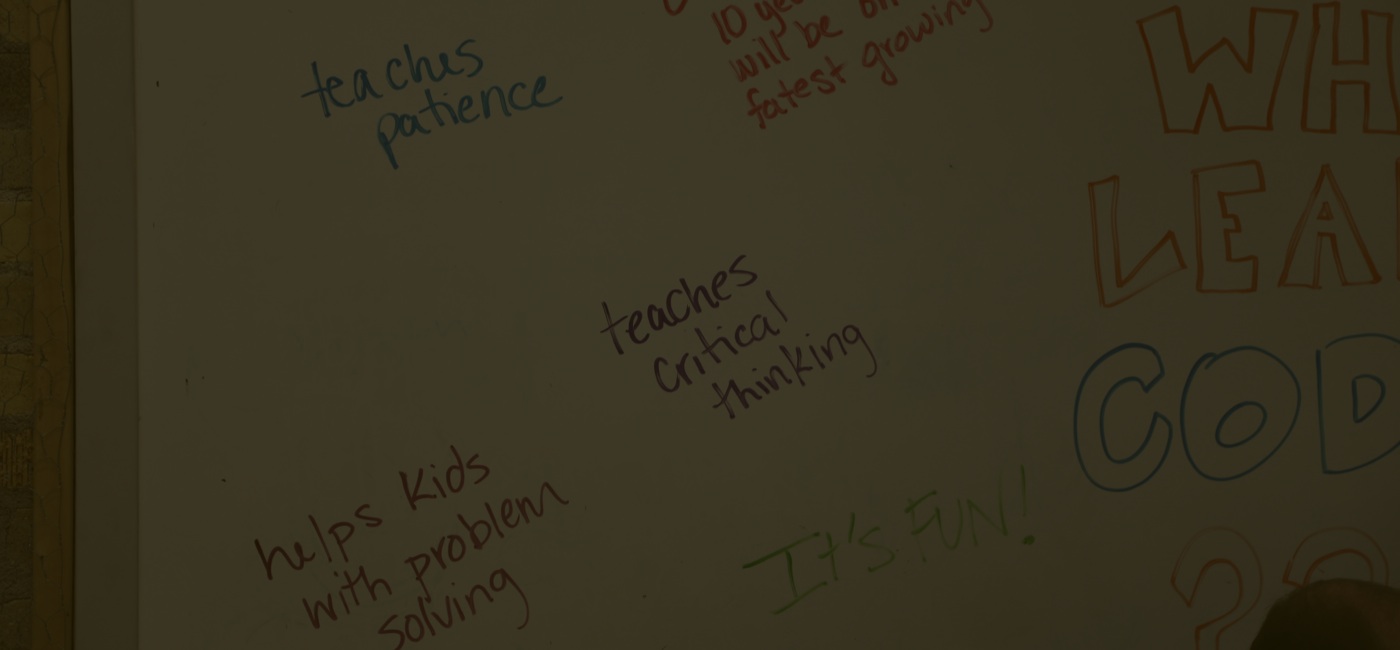 teaches
patience
10
will be
fatest growing
WH
LEA
COD
??
teaches
critical
thinking
helps kids
with problem
solving
It's FUN!